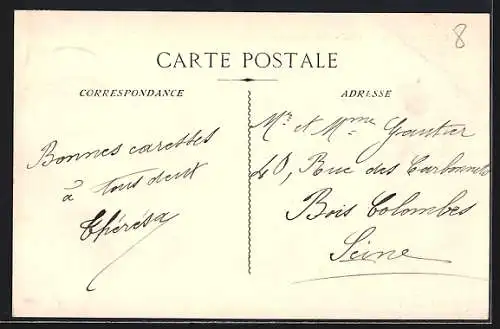 8
CARTE POSTALE
CORRESPONDANCE
ADRESSE
Bonnes caresses
à tous deux
Thérésa
Mr et Mme Gautier
40, Rue des Carbonnets
Bois Colombes
Seine